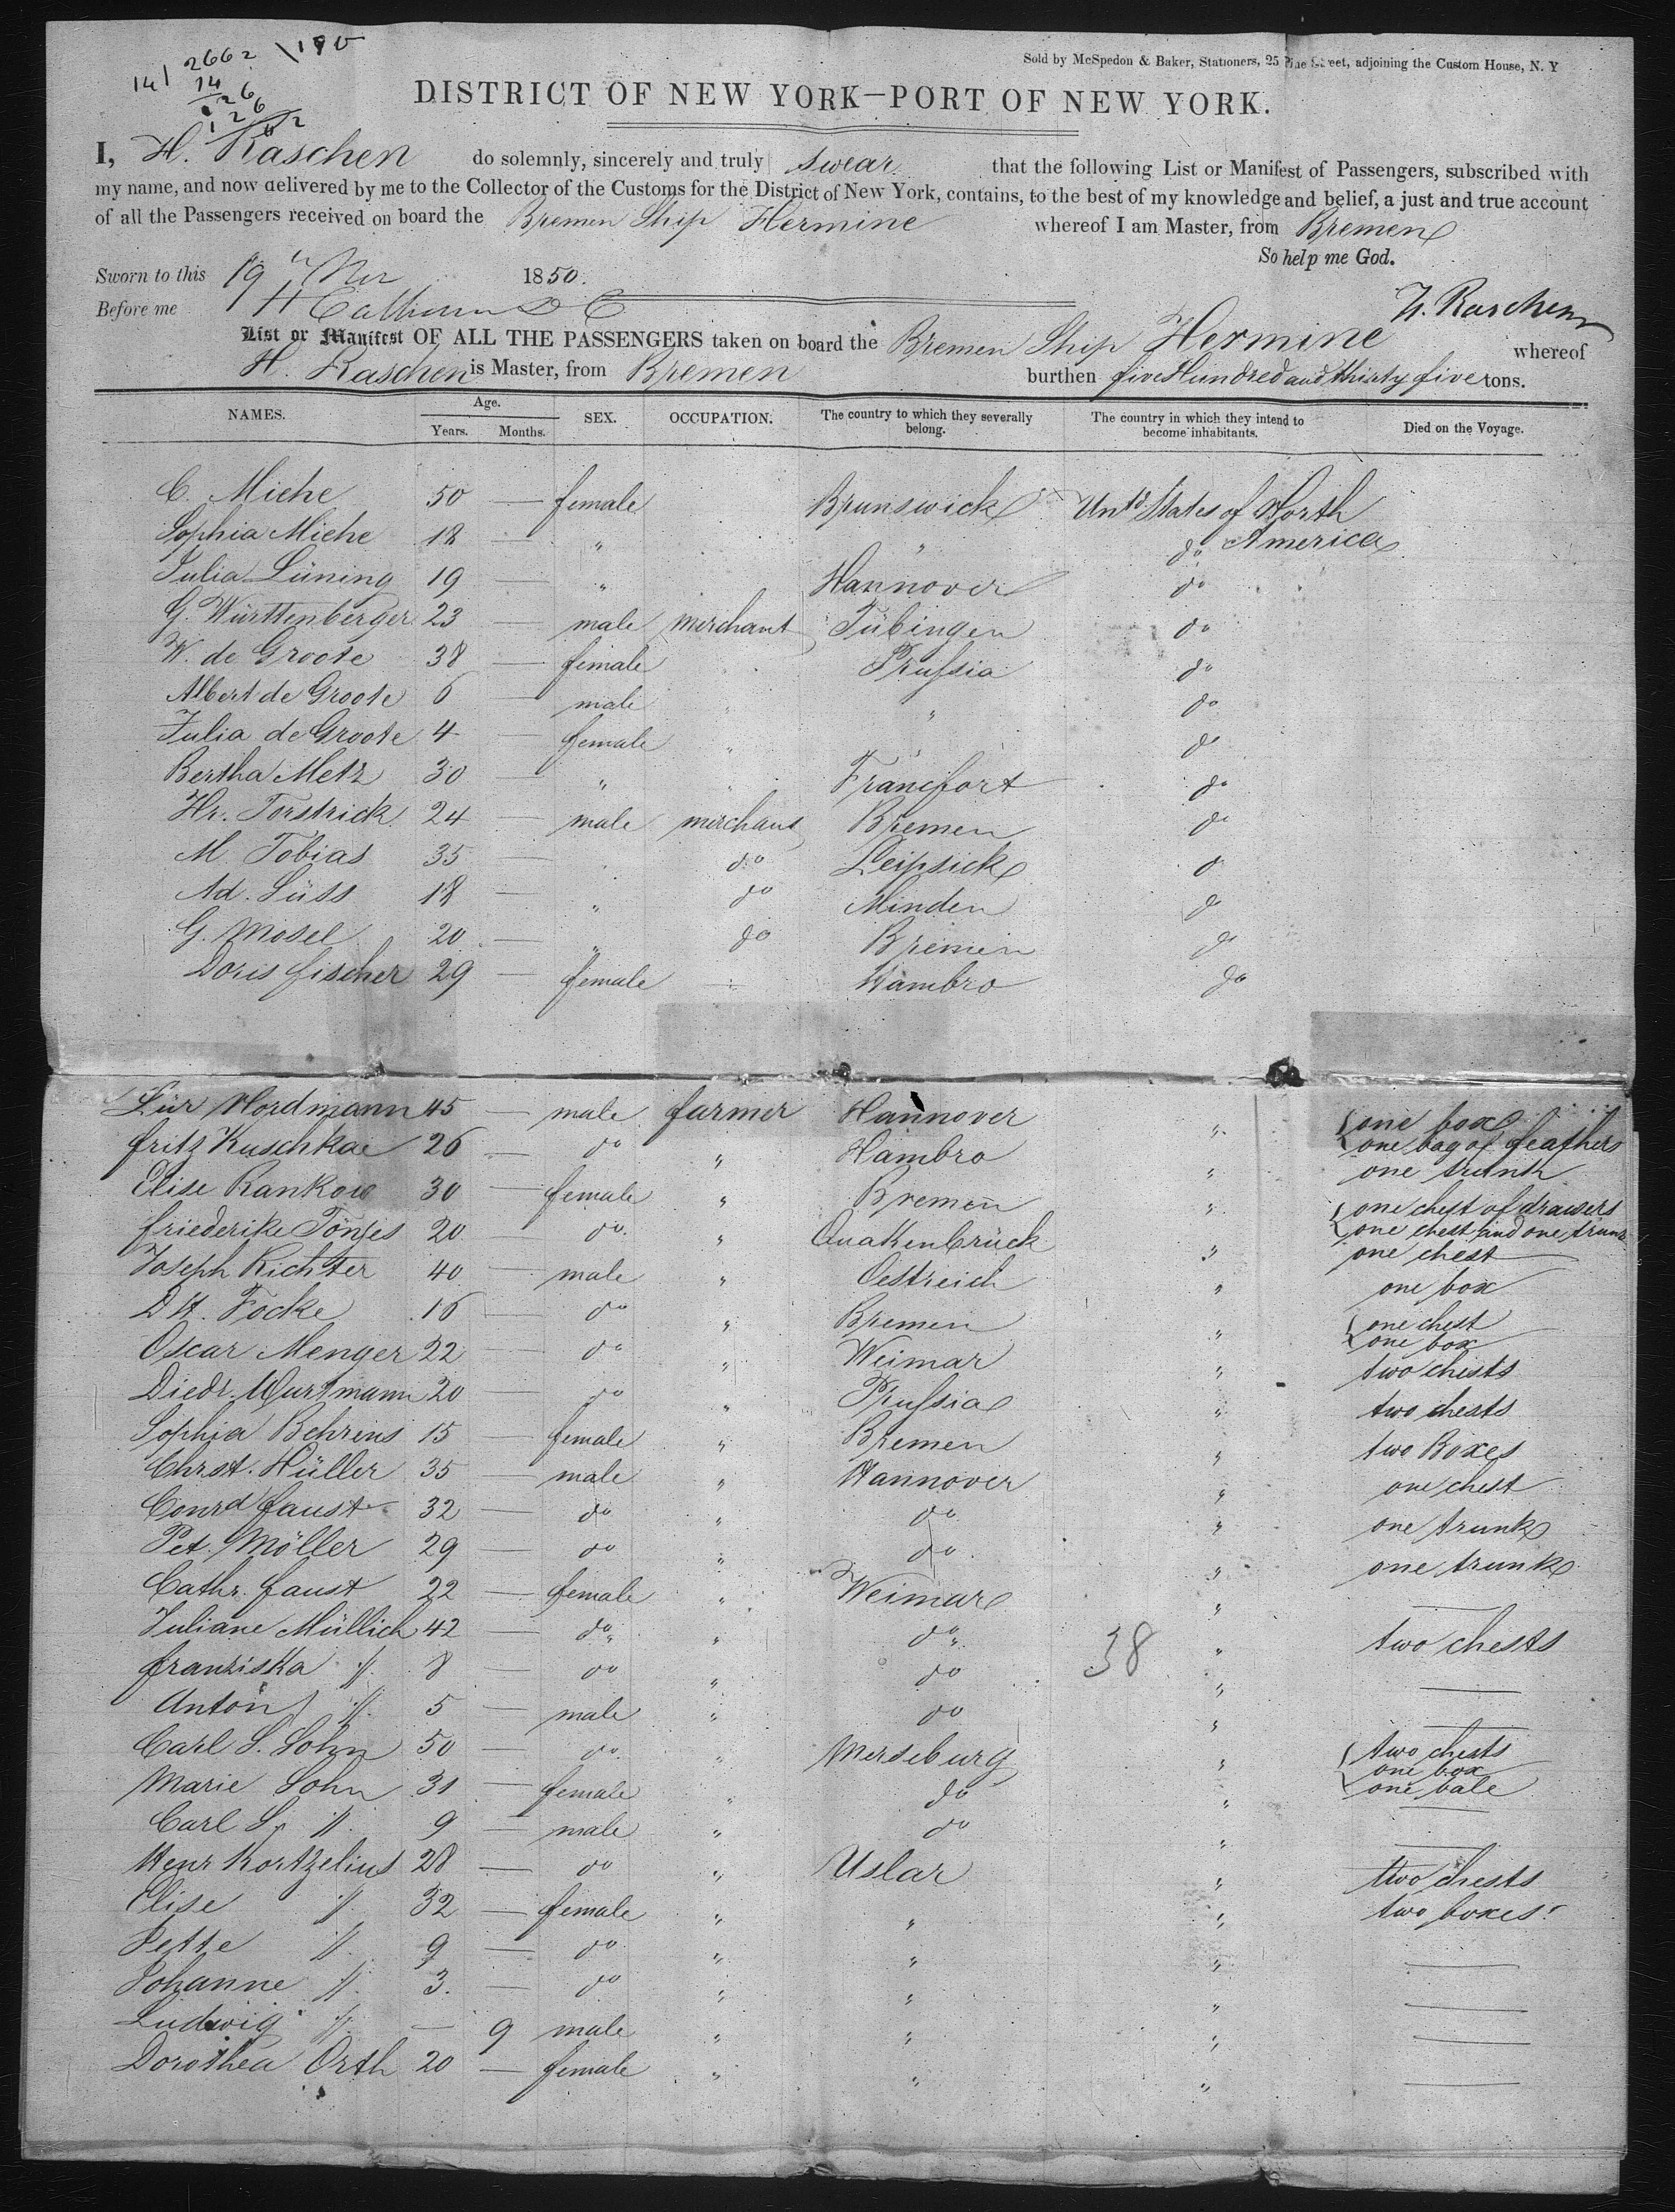 141 2662 190
14
126
126
02
Sold by McSpedon & Baker, Stationers, 25 Pine Street, adjoining the Custom House, N. Y
DISTRICT OF NEW YORK—PORT OF NEW YORK.
I, H. Raschen do solemnly, sincerely and truly swear that the following List or Manifest of Passengers, subscribed with
my name, and now delivered by me to the Collector of the Customs for the District of New York, contains, to the best of my knowledge and belief, a just and true account
of all the Passengers received on board the Bremen Ship Hermine whereof I am Master, from Bremen
So help me God.
Sworn to this 19 1850.
H. Raschen
Before me H Calhoun D C
List or Manifest OF ALL THE PASSENGERS taken on board the Bremen Ship Hermine whereof
H. Raschen is Master, from Bremen burthen five Hundred and thirty five tons.
NAMES. Age. SEX. OCCUPATION. The country to which they severally belong. The country in which they intend to become inhabitants. Died on the Voyage.
Years. Months.
C. Miehe 50 — female Brunswick Untd States of North
Sophia Miehe 18 — " " do America
Julia Lüning 19 — " Hannover do
G. Württenberger 23 — male merchant Tübingen do
W. de Groote 38 — female Prussia do
Albert de Groote 6 — male " do
Julia de Groote 4 — female " do
Bertha Metz 30 — " Francfort do
Hr. Torstrick 24 — male merchant Bremen do
M. Tobias 35 — " do Leipsick do
Ad. Süss 18 — " do Minden do
G. Mosel 20 — " do Bremen do
Doris Fischer 29 — female — Hambro do
Lür Nordmann 45 — male farmer Hannover " one box
one bag of feathers
Fritz Kuschkae 26 — do " Hambro " one trunk
Elise Rankow 30 — female " Bremen " one chest of drawers
one chest and one trunk
Friederike Tönjes 20 — do " Quakenbrück " one chest
Joseph Richter 40 — male " Oestreich " one box
D H. Focke 16 — do " Bremen " one chest
one box
Oscar Menger 22 — do " Weimar " two chests
Diedr. Wurtmann 20 — do " Prussia " two chests
Sophia Behrens 15 — female " Bremen " two Boxes
Chrst. Hüller 35 — male " Hannover " one chest
Conrd Faust 32 — do " do " one trunk
Pet. Möller 29 — do " do " one trunk
Cathr. Faust 22 — female " Weimar " —
Juliane Müllich 42 — do " do 38 " two chests
Franziska " 8 — do " do " —
Anton " 5 — male " do " —
Carl S. Sohn 50 — do " Merseburg " two chests
one box
one bale
Marie Sohn 31 — female " do " —
Carl S. " 9 — male " do " —
Henr Kortzelius 28 — do " Uslar " two chests
Elise " 32 — female " " " two boxes
Jette " 9 — do " " " —
Johanne " 3. — do " " " —
Ludwig " — 9 male " " " —
Dorothea Orth 20 — female " " " —